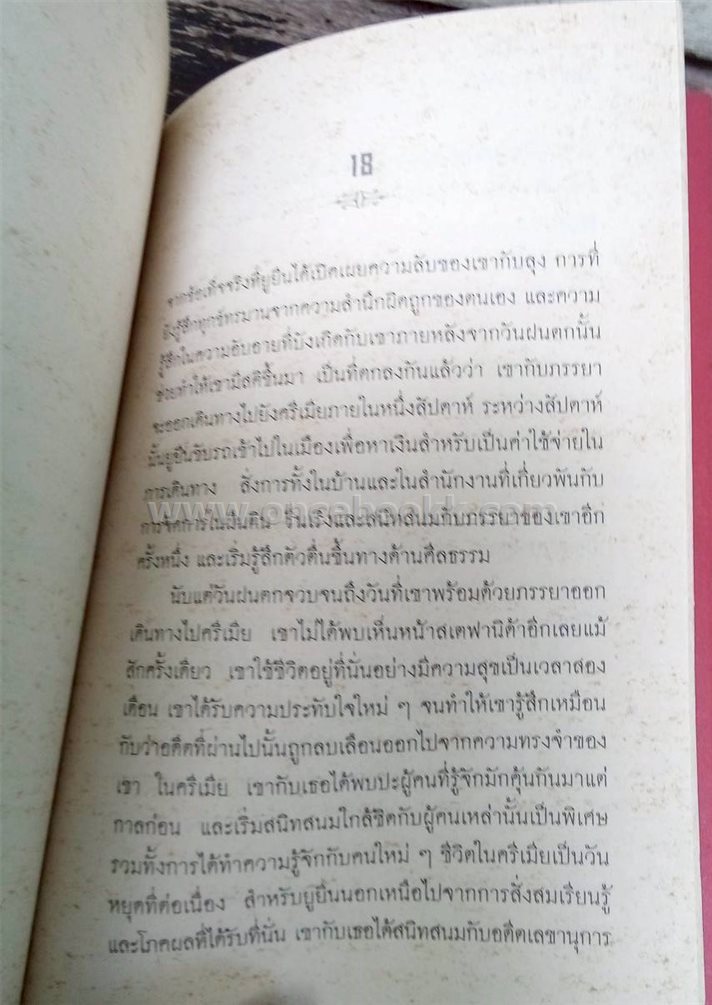 18
จากข้อเท็จจริงที่ยูยีนได้เปิดเผยความลับของเขากับลุง การที่
ยังรู้สึกทุกข์ทรมานจากความสำนึกผิดถูกของตนเอง และความ
รู้สึกในความอับอายที่บังเกิดกับเขาภายหลังจากวันฝนตกนั้น
ช่วยทำให้เขามีสติขึ้นมา เป็นที่ตกลงกันแล้วว่า เขากับภรรยา
จะออกเดินทางไปยังครีเมียภายในหนึ่งสัปดาห์ ระหว่างสัปดาห์
นั้นยูยีนขับรถเข้าไปในเมืองเพื่อหาเงินสำหรับเป็นค่าใช้จ่ายใน
การเดินทาง สั่งการทั้งในบ้านและในสำนักงานที่เกี่ยวพันกับ
การจัดการในผืนดิน รื่นเริงและสนิทสนมกับภรรยาของเขาอีก
ครั้งหนึ่ง และเริ่มรู้สึกตัวตื่นขึ้นทางด้านศีลธรรม
นับแต่วันฝนตกจวบจนถึงวันที่เขาพร้อมด้วยภรรยาออก
เดินทางไปครีเมีย เขาไม่ได้พบเห็นหน้าสเตฟานิด้าอีกเลยแม้
สักครั้งเดียว เขาใช้ชีวิตอยู่ที่นั่นอย่างมีความสุขเป็นเวลาสอง
เดือน เขาได้รับความประทับใจใหม่ ๆ จนทำให้เขารู้สึกเหมือน
กับว่าอดีตที่ผ่านไปนั้นถูกลบเลือนออกไปจากความทรงจำของ
เขา ในครีเมีย เขากับเธอได้พบปะผู้คนที่รู้จักมักคุ้นกันมาแต่
กาลก่อน และเริ่มสนิทสนมใกล้ชิดกับผู้คนเหล่านั้นเป็นพิเศษ
รวมทั้งการได้ทำความรู้จักกับคนใหม่ ๆ ชีวิตในครีเมียเป็นวัน
หยุดที่ต่อเนื่อง สำหรับยูยีนนอกเหนือไปจากการสั่งสมเรียนรู้
และโภคผลที่ได้รับที่นั่น เขากับเธอได้สนิทสนมกับอดีตเลขานุการ